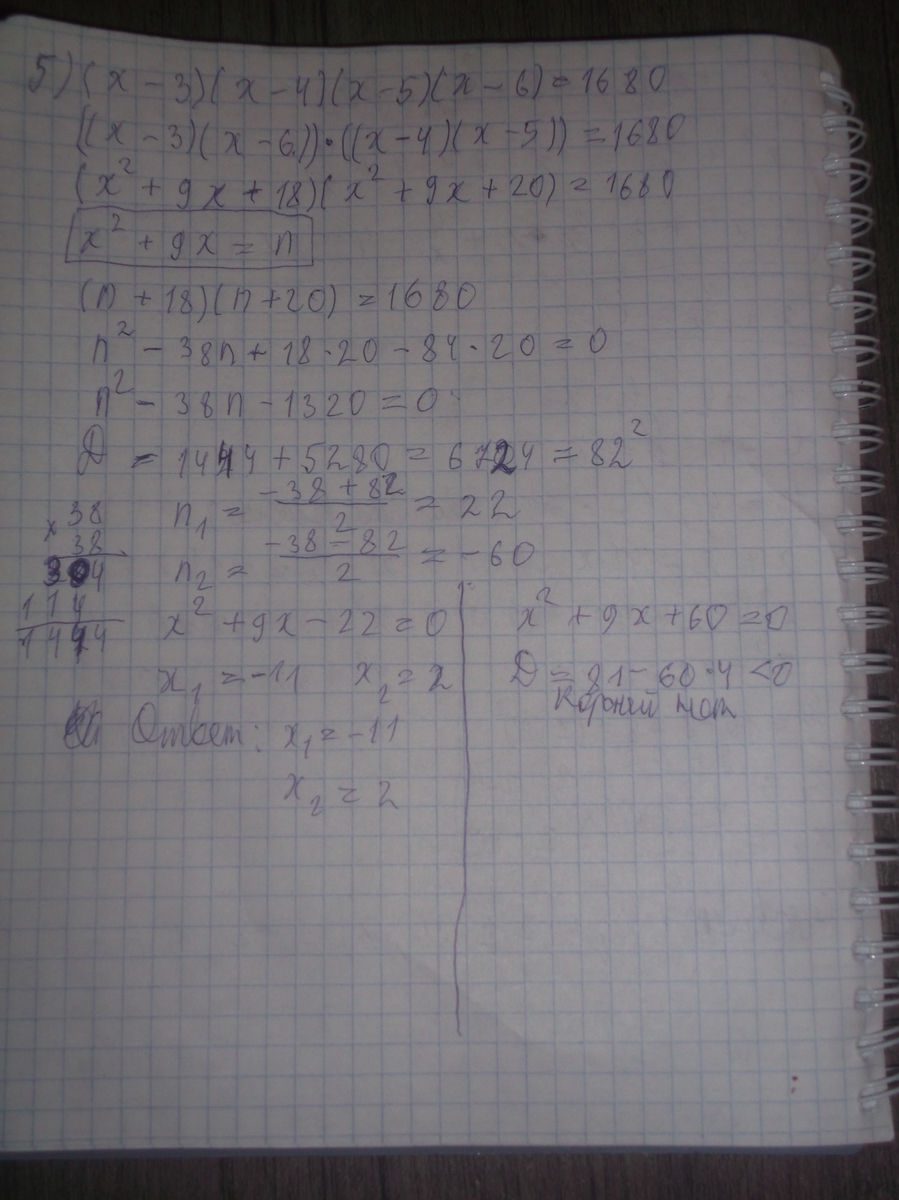 5) (x - 3)(x - 4)(x - 5)(x - 6) = 1680
((x - 3)(x - 6))·((x - 4)(x - 5)) = 1680
(x² + 9x + 18)(x² + 9x + 20) = 1680
x² + 9x = n
(n + 18)(n + 20) = 1680
n² - 38n + 18·20 - 84·20 = 0
n² - 38n - 1320 = 0
D = 1444 + 5280 = 6724 = 82²
n₁ = (-38 + 82)/2 = 22
n₂ = (-38 - 82)/2 = -60
× 38
38
304
114
1444
x² + 9x - 22 = 0
x₁ = -11 x₂ = 2
Ответ: x₁ = -11
x₂ = 2
x² + 9x + 60 = 0
D = 81 - 60·4 < 0
Корней нет